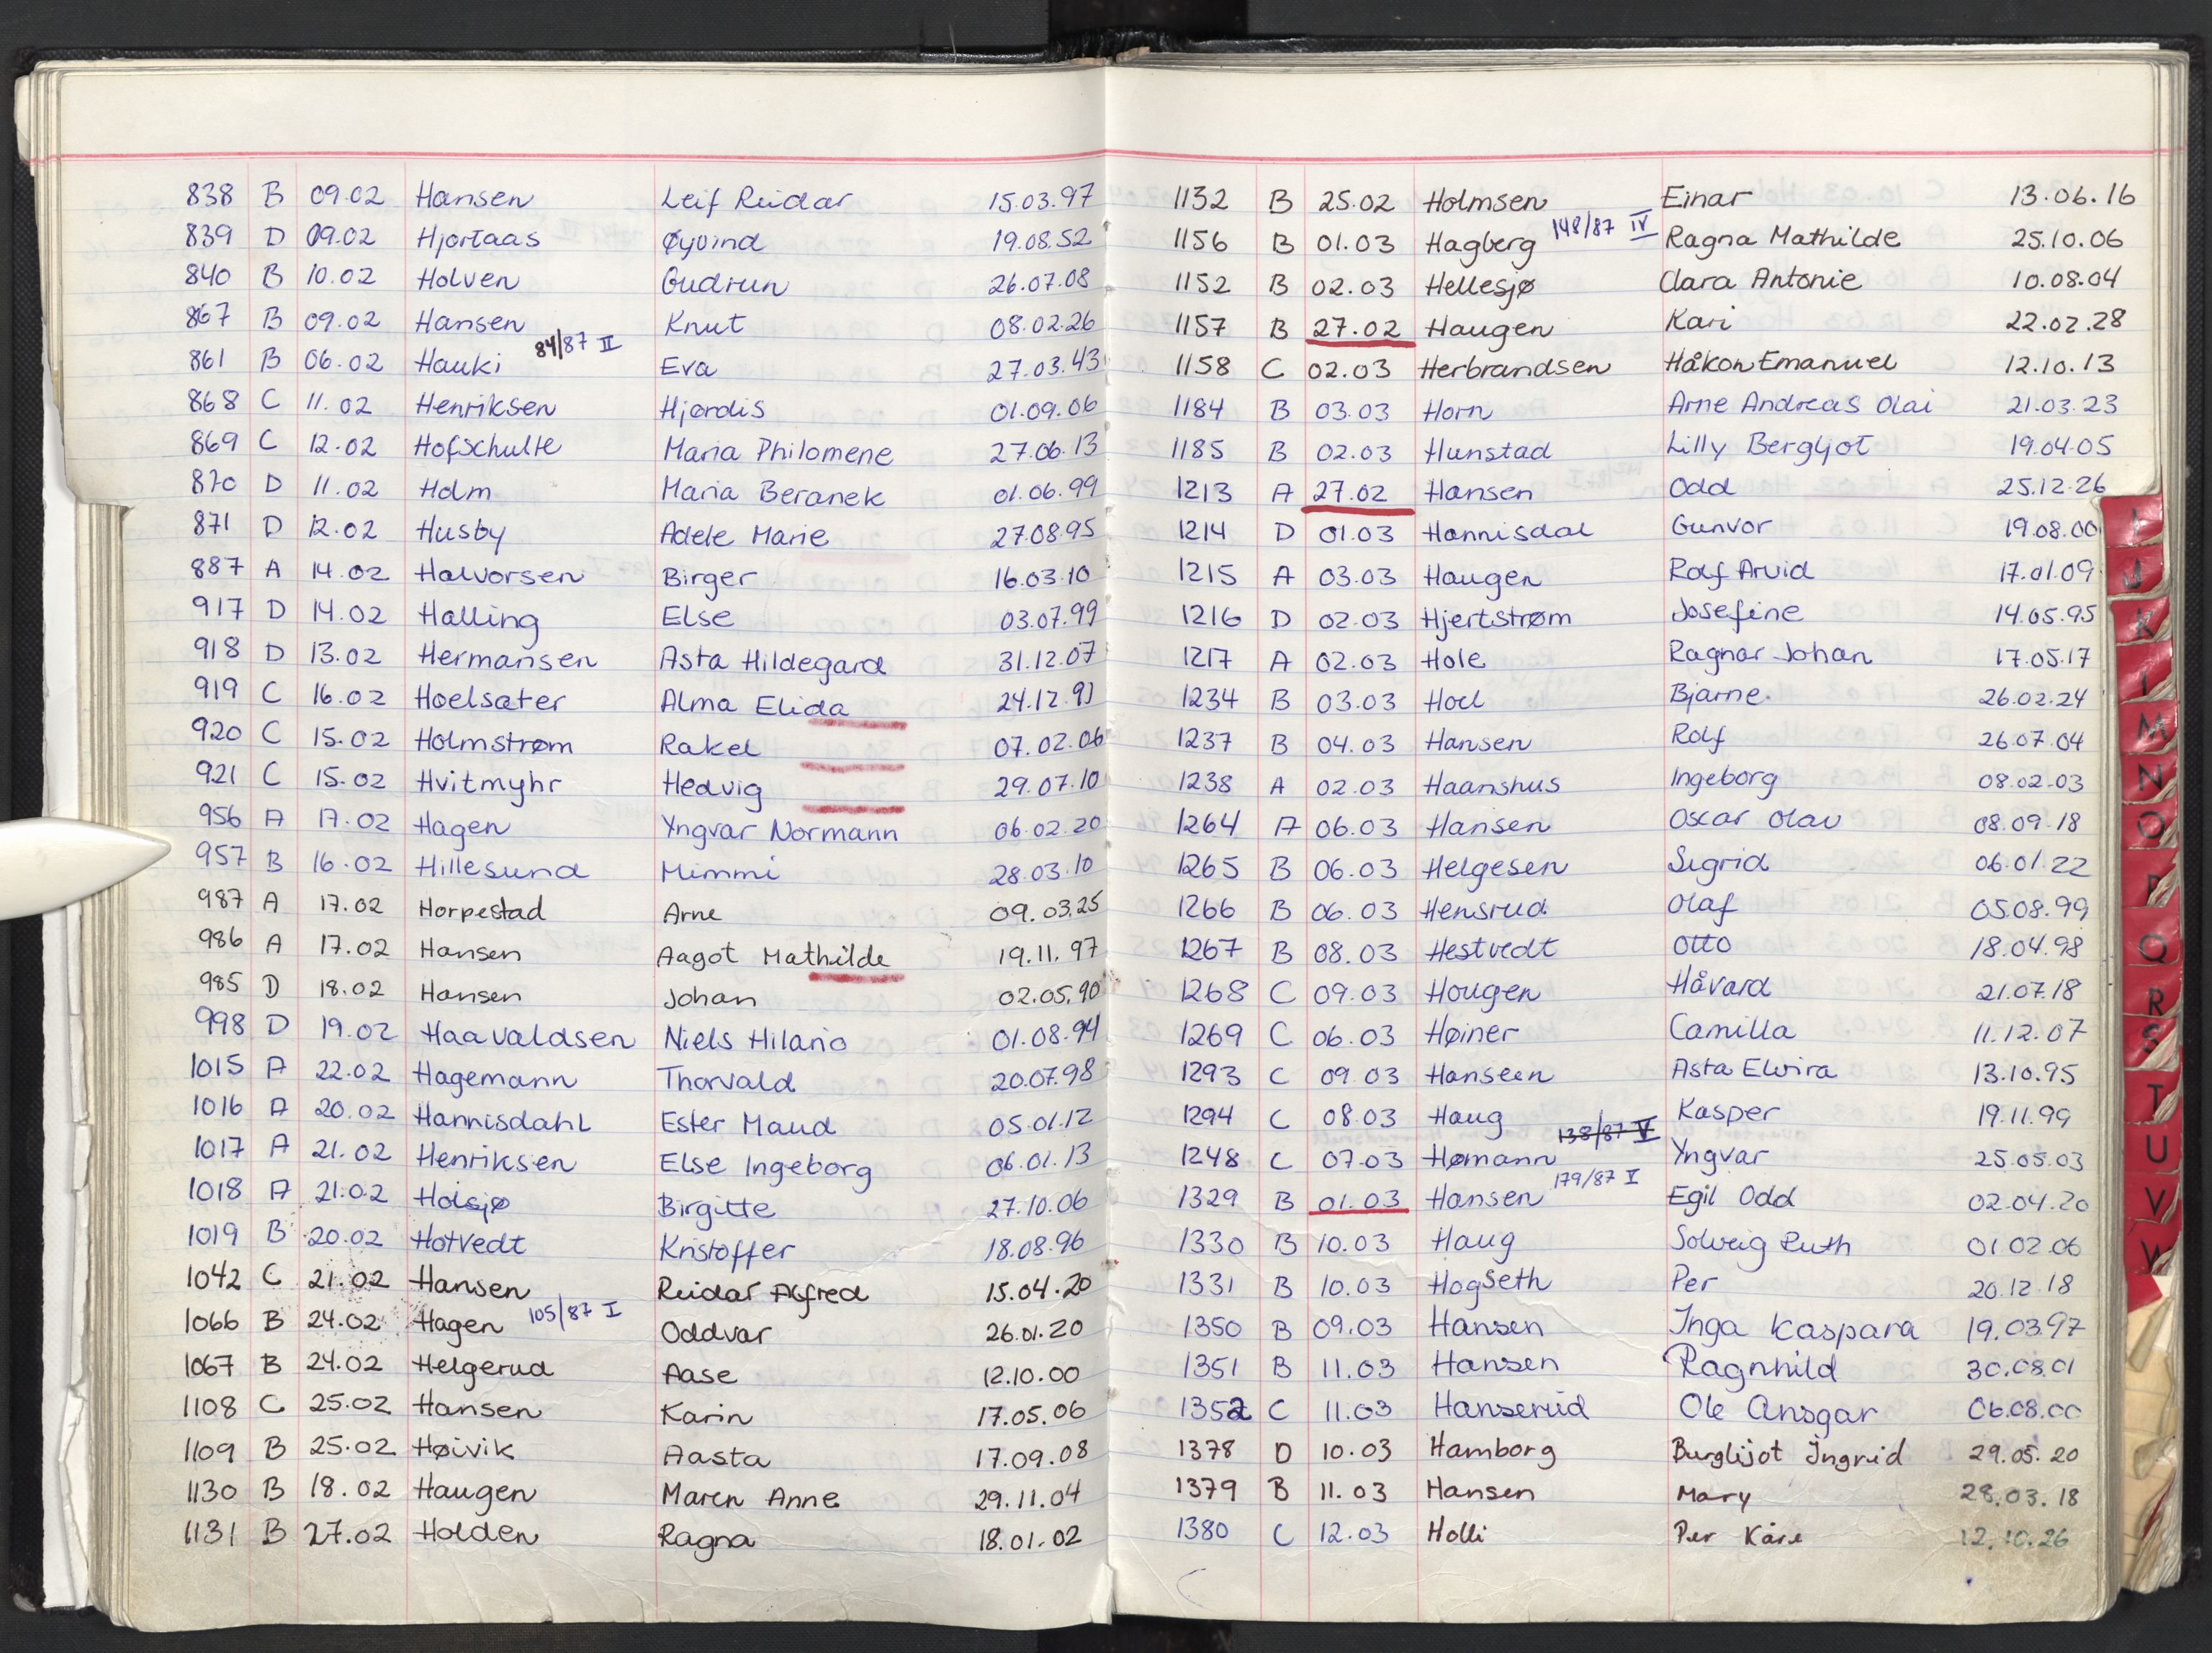 838 B 09.02 Hansen Leif Reidar 15.03.97
839 D 09.02 Hjortaas Øyvind 19.08.52
840 B 10.02 Holven Gudrun 26.07.08
867 B 09.02 Hansen Knut 08.02.26
861 B 06.02 Hauki 84/87 II Eva 27.03.43
868 C 11.02 Henriksen Hjørdis 01.09.06
869 C 12.02 Hofschulte Maria Philomene 27.06.13
870 D 11.02 Holm Maria Beranek 01.06.99
871 D 12.02 Husby Adele Marie 27.08.95
887 A 14.02 Halvorsen Birger 16.03.10
917 D 14.02 Halling Else 03.07.99
918 D 13.02 Hermansen Asta Hildegard 31.12.07
919 C 16.02 Hoelsæter Alma Elida 24.12.91
920 C 15.02 Holmstrøm Rakel 07.02.06
921 C 15.02 Hvitmyhr Hedvig 29.07.10
956 A 17.02 Hagen Yngvar Normann 06.02.20
957 B 16.02 Hillesund Mimmi 28.03.10
987 A 17.02 Horpestad Arne 09.03.25
986 A 17.02 Hansen Aagot Mathilde 19.11.97
985 D 18.02 Hansen Johan 02.05.90
998 D 19.02 Haavaldsen Niels Hilario 01.08.94
1015 A 22.02 Hagemann Thorvald 20.07.98
1016 A 20.02 Hannisdahl Ester Maud 05.01.12
1017 A 21.02 Henriksen Else Ingeborg 06.01.13
1018 A 21.02 Holsjø Birgitte 27.10.06
1019 B 20.02 Hotvedt Kristoffer 18.08.96
1042 C 21.02 Hansen Reidar Alfred 15.04.20
1066 B 24.02 Hagen 105/87 I Oddvar 26.01.20
1067 B 24.02 Helgerud Aase 12.10.00
1108 C 25.02 Hansen Karin 17.05.06
1109 B 25.02 Høivik Aasta 17.09.08
1130 B 18.02 Haugen Maren Anne 29.11.04
1131 B 27.02 Holden Ragna 18.01.02
1132 B 25.02 Holmsen Einar 13.06.16
1156 B 01.03 Hagberg 148/87 IV Ragna Mathilde 25.10.06
1152 B 02.03 Hellesjø Clara Antonie 10.08.04
1157 B 27.02 Haugen Kari 22.02.28
1158 C 02.03 Herbrandsen Håkon Emanuel 12.10.13
1184 B 03.03 Horn Arne Andreas Olai 21.03.23
1185 B 02.03 Hunstad Lilly Bergljot 19.04.05
1213 A 27.02 Hansen Odd 25.12.26
1214 D 01.03 Hannisdal Gunvor 19.08.00
1215 A 03.03 Haugen Rolf Arvid 17.01.09
1216 D 02.03 Hjertstrøm Josefine 14.05.95
1217 A 02.03 Hole Ragnar Johan 17.05.17
1234 B 03.03 Hoel Bjarne 26.02.24
1237 B 04.03 Hansen Rolf 26.07.04
1238 A 02.03 Haanshus Ingeborg 08.02.03
1264 A 06.03 Hansen Oscar Olav 08.09.18
1265 B 06.03 Helgesen Sigrid 06.01.22
1266 B 06.03 Hensrud Olaf 05.08.99
1267 B 08.03 Hestvedt Otto 18.04.98
1268 C 09.03 Hougen Håvard 21.07.18
1269 C 06.03 Høiner Camilla 11.12.07
1293 C 09.03 Hanseen Asta Elvira 13.10.95
1294 C 08.03 Haug Kasper 19.11.99
1248 C 07.03 Hømann 138/87 V Yngvar 25.05.03
1329 B 01.03 Hansen 179/87 I Egil Odd 02.04.20
1330 B 10.03 Haug Solveig Ruth 01.02.06
1331 B 10.03 Hogseth Per 20.12.18
1350 B 09.03 Hansen Inga Kaspara 19.03.97
1351 B 11.03 Hansen Ragnhild 30.08.01
1352 C 11.03 Hanserud Ole Ansgar 06.08.00
1378 D 10.03 Hamborg Burglijot Ingrid 29.05.20
1379 B 11.03 Hansen Mary 28.03.18
1380 C 12.03 Holli Per Kåre 12.10.26
I
J
K
M
N
O
P
Q
R
S
T
U
V